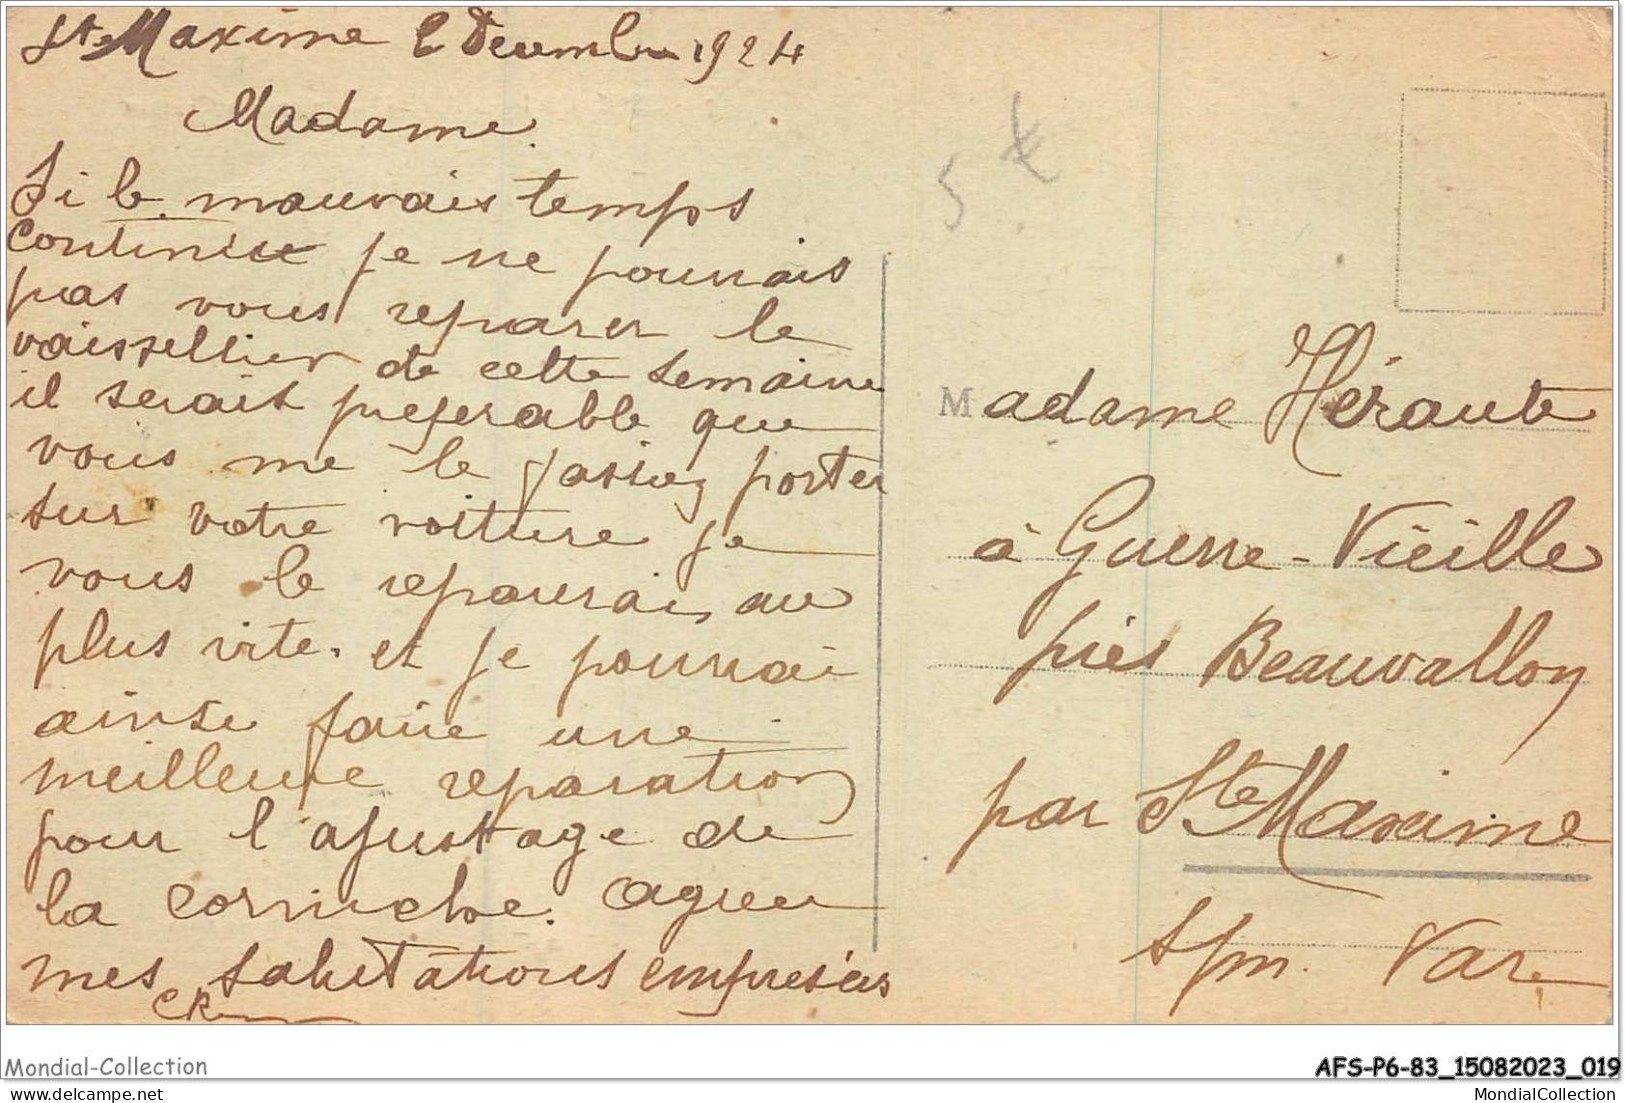 Ste Maxime 2 Decembre 1924
Madame
Si le mauvais temps
continue je ne pourrais
pas vous reparer le
vaissellier de cette semaine
il serait preferable que
vous me le fassiez porter
sur votre voiture je
vous le reparerai au
plus vite. et je pourrai
ainse faire une
meilleure reparation
pour l'ajustage de
la corniche. agreer
mes salutations empresées
5 €
Madame Héraute
à Guerre-Vieille
près Beauvallon
par Ste Maxime
Var
Mondial-Collection
AFS-P6-83_15082023_019
delcampe.net
MondialCollection